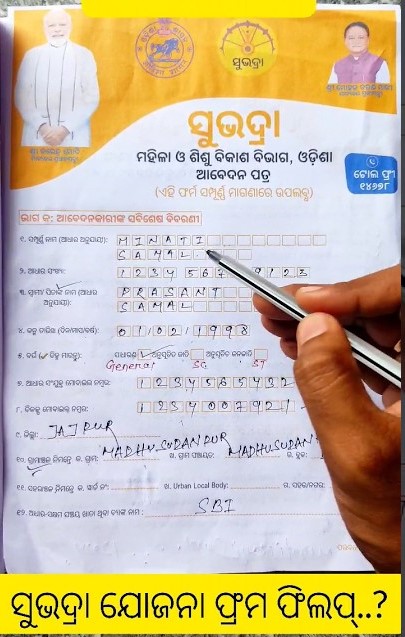 ସୁଭଦ୍ରା
ସୁଭଦ୍ରା
ମହିଳା ଓ ଶିଶୁ ବିକାଶ ବିଭାଗ, ଓଡ଼ିଶା
ଆବେଦନ ପତ୍ର
(ଏହି ଫର୍ମ ସମ୍ପୂର୍ଣ୍ଣ ମାଗଣାରେ ଉପଲବ୍ଧ)
ଟୋଲ ଫ୍ରୀ
୧୪୬୭୮
ଭାଗ କ: ଆବେଦନକାରୀଙ୍କ ସବିଶେଷ ବିବରଣୀ
୧. ସମ୍ପୂର୍ଣ୍ଣ ନାମ (ଆଧାର ଅନୁଯାୟୀ): MINATI
SAMAL
୨. ଆଧାର ସଂଖ୍ୟା: 1234567 9123
୩. ସ୍ୱାମୀ/ ପିତାଙ୍କ ନାମ (ଆଧାର ଅନୁଯାୟୀ): PRASANT
SAMAL
୪. ଜନ୍ମ ତାରିଖ (ଦିନ/ମାସ/ବର୍ଷ): 01/02/1998
୫. ବର୍ଗ (✓ ଚିହ୍ନ ମାରନ୍ତୁ): ସାଧାରଣ ✓ ଅନୁସୂଚିତ ଜାତି ଅନୁସୂଚିତ ଜନଜାତି
General SC ST
୭. ଆଧାର ସଂଯୁକ୍ତ ମୋବାଇଲ ନମ୍ବର: 1234565432
୮. ବିକଳ୍ପ ମୋବାଇଲ ନମ୍ବର: 1234007921
୯. ଜିଲ୍ଲା: JAJPUR
୧୦. ଗ୍ରାମାଞ୍ଚଳ ନିମନ୍ତେ କ. ଗ୍ରାମ: MADHUSUDANPUR ଖ. ଗ୍ରାମ ପଞ୍ଚାୟତ: MADHUSUDAN ଗ. ବ୍ଲକ:
୧୧. ସହରାଞ୍ଚଳ ନିମନ୍ତେ କ. ୱାର୍ଡ ନଂ: ଖ. Urban Local Body: ଗ. ସହର/ନଗର:
୧୨. ଆଧାର-ସକ୍ଷମ ସଞ୍ଚୟ ଖାତା ଥିବା ବ୍ୟାଙ୍କ ନାମ: SBI
ସୁଭଦ୍ରା ଯୋଜନା ଫ୍ରମ ଫିଲପ୍..?